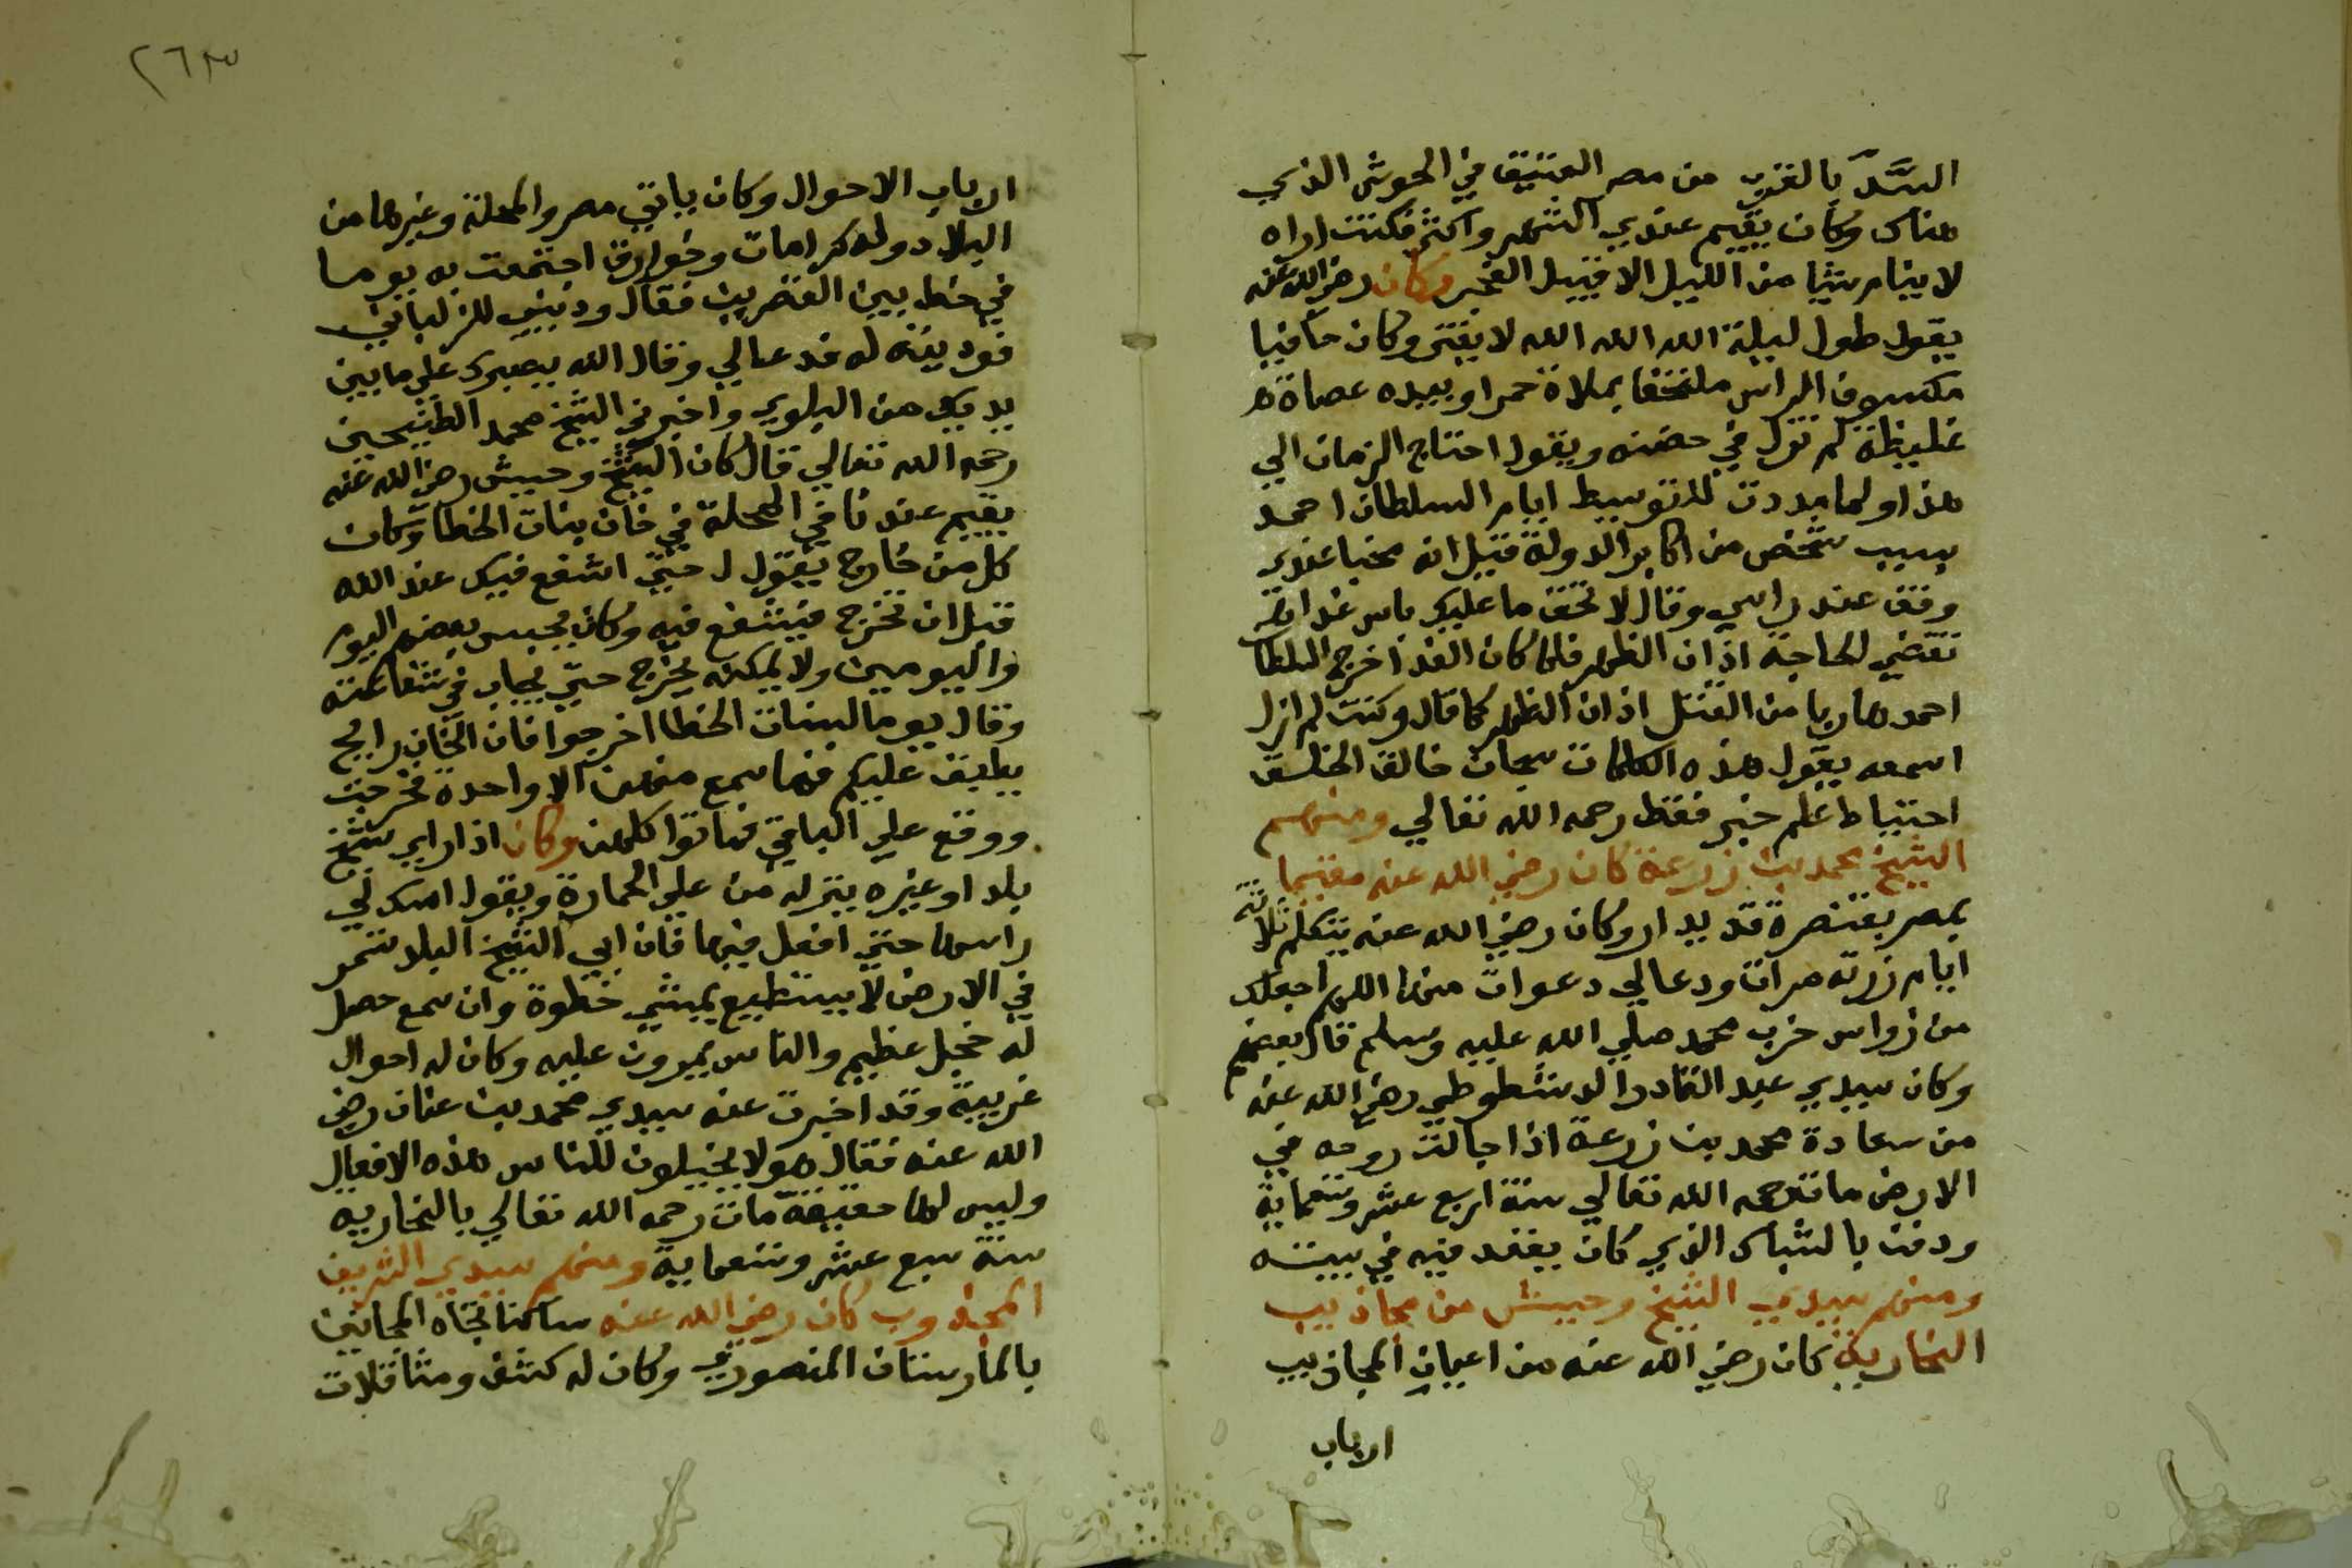 السَّدّ بالقرب من مصر العتيق في الحوش الذي
هناك وكان يقيم عندي الشهر واكثر فكنت اراه
لا ينام شيا من الليل الا قبيل الفجر وكان رضي الله عنه
يقول طول ليلة الله الله الله لا يفتر وكان حافيا
مكشوف الراس ملتحفا بملاة حمرا وبيده عصاة
غليظة لم تزل في حضنه ويقول احتاج الزمان الي
هذا ولما مددت للتوسيط ايام السلطان احمد
بسبب شخص من اكابر الدولة قيل انه مخبا عندي
وقف عند راسي وقال لا تخف ما عليك باس غدا
تقضي الحاجة اذان الظهر فلما كان الغد اخرج السلطان
احمد هاربا من القتل اذان الظهر كما قال وكنت لم ازل
اسمعه يقول هذه الكلمات سبحان خالق الخلق
احتياط علم خبر فقط رحمه الله تعالي ومنهم
الشيخ محمد بن زرعة كان رضي الله عنه مقيما
بمصر بقنطرة قديدار وكان رضي الله عنه يتكلم ثلاثة
ايام زرته مرات ودعا لي دعوات منها اللهم اجعلك
من زواس حزب محمد صلي الله عليه وسلم قال بعضهم
وكان سيدي عبد القادر الدشطوطي رضي الله عنه
من سعادة محمد بن زرعة اذا جالت روحه في
الارض مات رحمه الله تعالي سنة اربع عشر وتسعماية
ودفن بالشباك الذي كان يقعد فيه في بيته
ومنهم سيدي الشيخ وحيش من مجاذيب
النحارية كان رضي الله عنه من اعيان المجاذيب
ارباب
٢٦٣
ارباب الاحوال وكان ياتي مصر والمحلة وغيرها من
البلاد وله كرامات وخوارق اجتمعت به يوما
في خط بين القصرين فقال وديني للزلباني
فوديته له فدعا لي وقال الله يصبرك علي ما بين
يديك من البلوي واخبرني الشيخ محمد الطنيخي
رحمه الله تعالي قال كان الشيخ وحيش رضي الله عنه
يقيم عندنا في المحلة في خان بنات الخطا وكان
كل من خارج يقول له حتي اشفع فيك عند الله
قبل ان تخرج فيشفع فيه وكان يحبس بعضهم اليوم
واليومين ولا يمكنه يخرج حتي يجاب في شفاعته
وقال يوما لبنات الخطا اخرجوا فان الخان رايح
يطبق عليكم فما سمع منهن الا واحدة فخرجت
ووقع علي الباقي فماتوا كلهن وكان اذا راي شيخ
بلد او غيره ينزله من علي الحمارة ويقول امسك لي
راسها حتي افعل فيها فان ابي الشيخ البلد تسمر
في الارض لا يستطيع يمشي خطوة وان سمع حصل
له خجل عظيم والناس يمرون عليه وكان له احوال
غريبة وقد اخبرت عنه سيدي محمد بن عنان رضي
الله عنه فقال هولا يخيلون للناس هذه الافعال
وليس لها حقيقة مات رحمه الله تعالي بالنحاريه
سنة سبع عشر وتسعماية ومنهم سيدي الشريف
المجذوب كان رضي الله عنه ساكنا تجاه المجانين
بالمارستان المنصوري وكان له كشف ومثاقلات